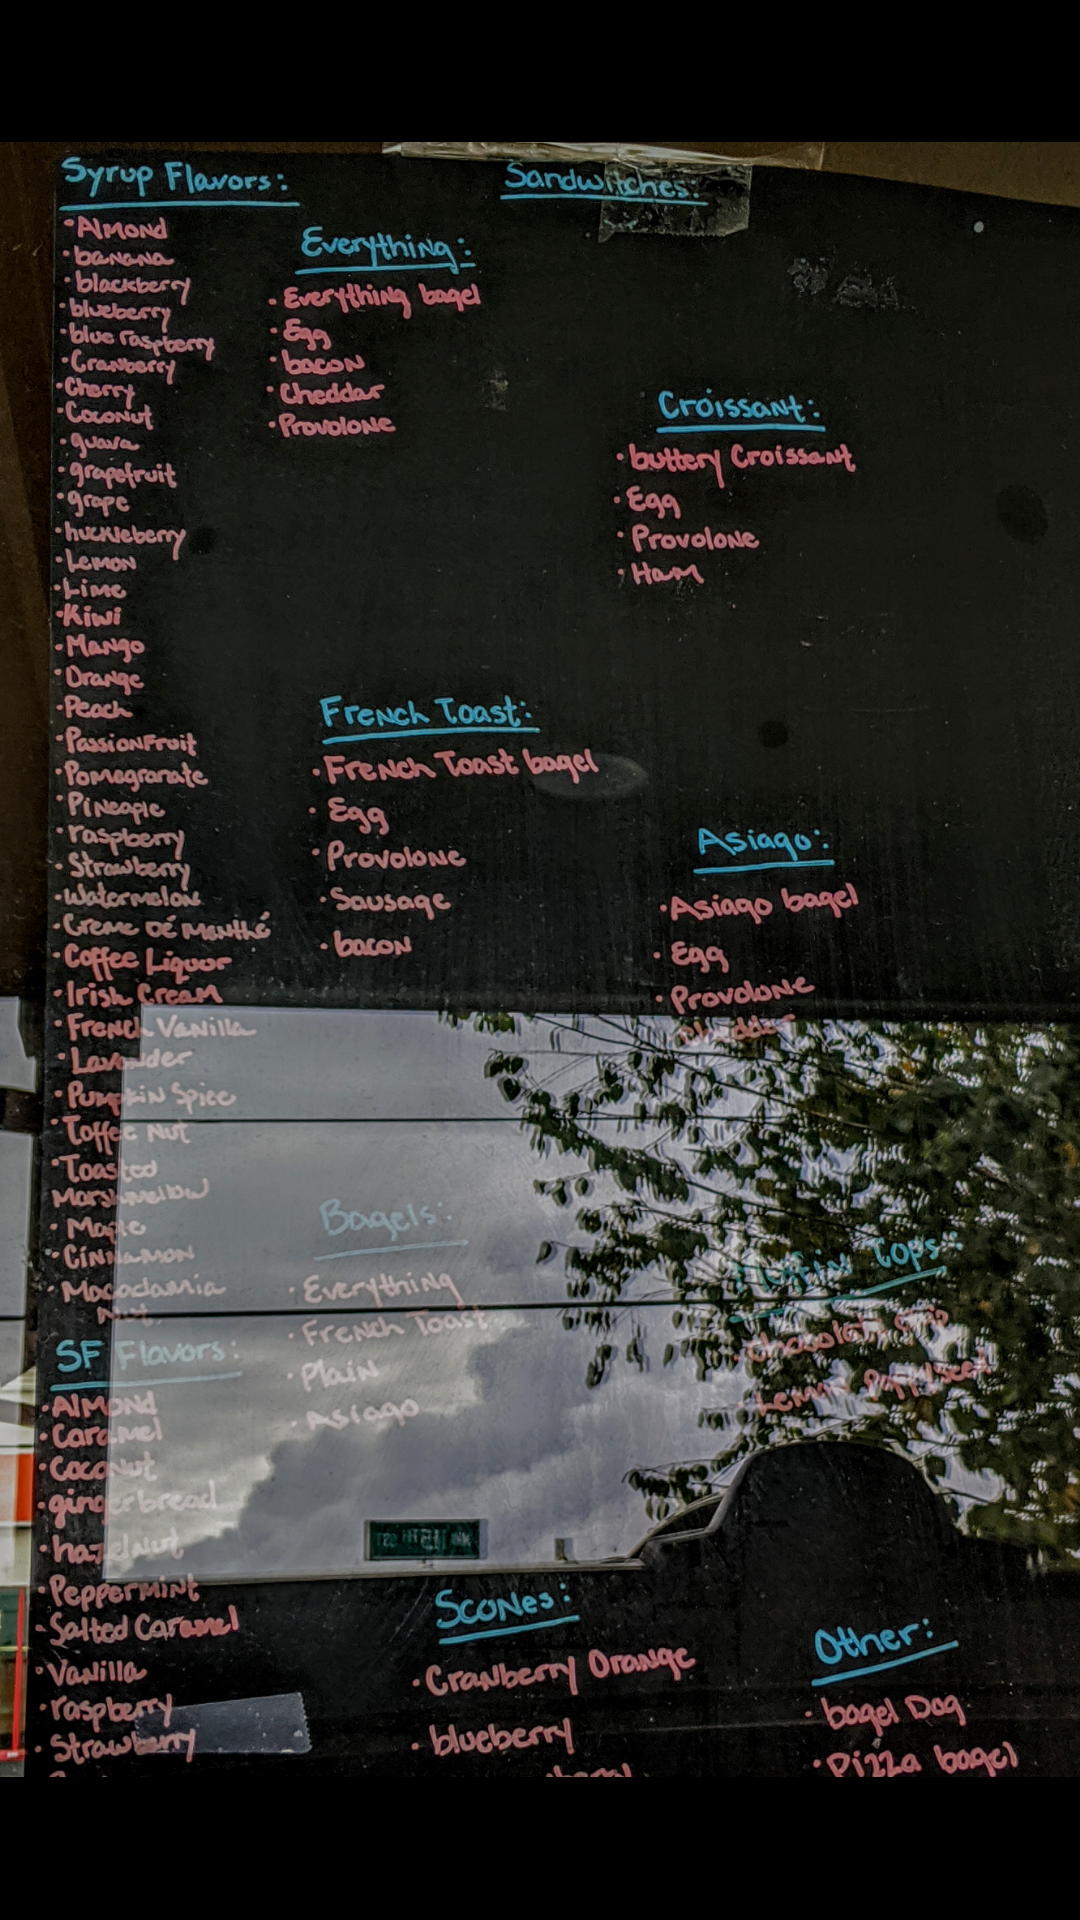 Syrup Flavors:
• Almond
• banana
• blackberry
• blueberry
• blue raspberry
• Cranberry
• Cherry
• Coconut
• guava
• grapefruit
• grape
• huckleberry
• Lemon
• Lime
• Kiwi
• Mango
• Orange
• Peach
• PassionFruit
• Pomegranate
• Pineaple
• raspberry
• Strawberry
• Watermelon
• Creme Dé Menthé
• Coffee Liquor
• Irish Cream
• French Vanilla
• Lavender
• Pumpkin Spice
• Toffee Nut
• Toasted
Marshmellow
• Maple
• Cinnamon
• Macadamia
Nut
SF Flavors:
• Almond
• Caramel
• Coconut
• gingerbread
• hazelnut
• Peppermint
• Salted Caramel
• Vanilla
• raspberry
• Strawberry
Sandwitches:
Everything:
• Everything bagel
• Egg
• bacon
• Cheddar
• Provolone
Croissant:
• buttery Croissant
• Egg
• Provolone
• Ham
French Toast:
• French Toast bagel
• Egg
• Provolone
• Sausage
• bacon
Asiago:
• Asiago bagel
• Egg
• Provolone
• Cheddar
Bagels:
• Everything
• French Toast
• Plain
• Asiago
Muffin Tops:
• Chip
• Lemon
Scones:
• Cranberry Orange
• blueberry
Other:
• bagel Dog
• Pizza bagel